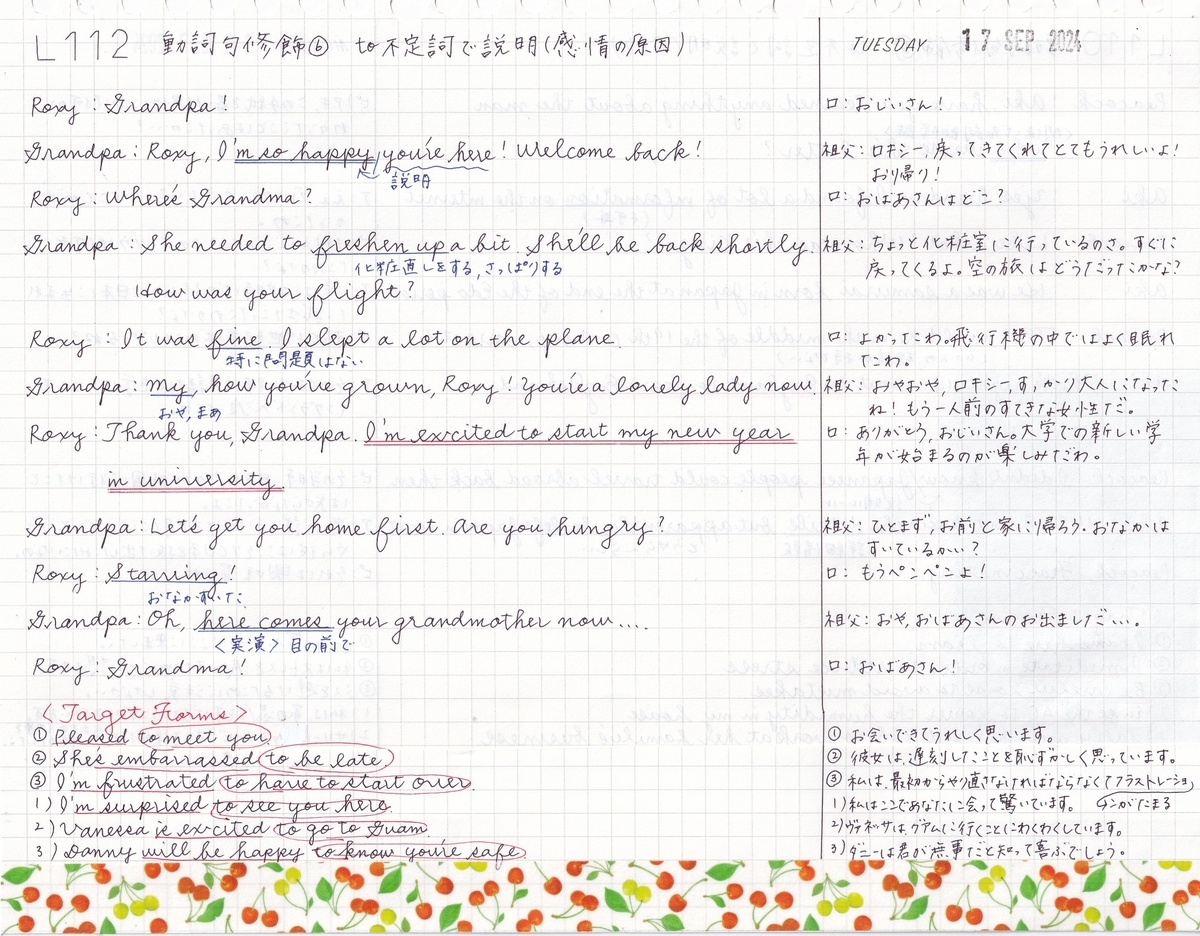 L112 動詞句修飾⑥ to不定詞で説明(感情の原因)
TUESDAY 17 SEP 2024
Roxy : Grandpa!
ロ: おじいさん!
Grandpa : Roxy, I'm so happy you're here! Welcome back!
説明
祖父: ロキシー, 戻ってきてくれてとてもうれしいよ!
おり帰り!
Roxy : Where's Grandma?
ロ: おばあさんはどこ?
Grandpa : She needed to freshen up a bit. She'll be back shortly.
化粧直しをする, さっぱりする
How was your flight?
祖父: ちょっと化粧室に行っているのさ。すぐに
戻ってくるよ。空の旅はどうだったかな?
Roxy : It was fine. I slept a lot on the plane.
特に問題はない
ロ: よかったわ。飛行機の中ではよく眠れ
たわ。
Grandpa : My, how you've grown, Roxy! You're a lovely lady now.
おや, まぁ
祖父: おやおや, ロキシー, すっかり大人になった
ね! もう一人前のすてきな女性だ。
Roxy : Thank you, Grandpa. I'm excited to start my new year
in university.
ロ: ありがとう, おじいさん。大学での新しい学
年が始まるのが楽しみだわ。
Grandpa : Let's get you home first. Are you hungry?
祖父: ひとまず, お前と家に帰ろう. おなかは
すいているかい?
Roxy : Starving!
おなかすいた
ロ: もうペンペンよ!
Grandpa : Oh, here comes your grandmother now....
<実演> 目の前で
祖父: おや, おばあさんのお出ましだ….
Roxy : Grandma!
ロ: おばあさん!
<Target Forms>
① Pleased to meet you.
② She's embarrassed to be late.
③ I'm frustrated to have to start over.
1) I'm surprised to see you here.
2) Vanessa is excited to go to Guam.
3) Danny will be happy to know you're safe.
① お会いできてうれしく思います。
② 彼女は, 遅刻したことを恥ずかしく思っています。
③ 私は, 最初からやり直さなければならなくてフラストレーショ
ンがたまる
1) 私はここであなたに会って驚いています。
2) ヴァネッサは, グアムに行くことにわくわくしています。
3) ダニーは君が無事だと知って喜ぶでしょう。